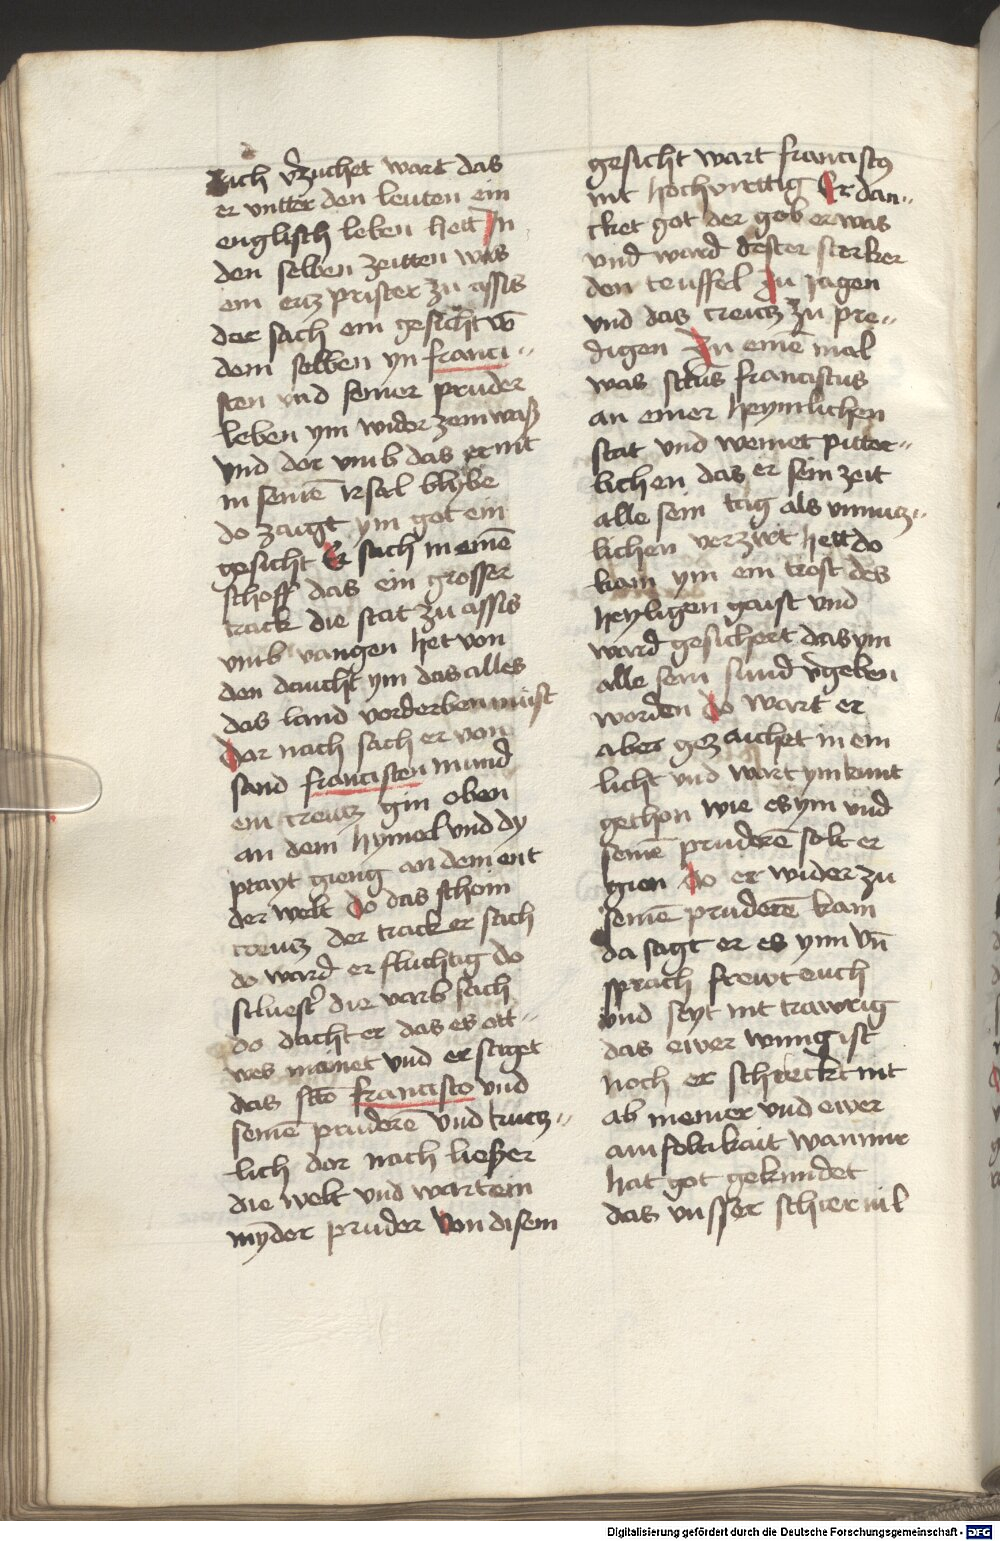 lich v̾zuchet wart das
er vntter den leuten ein
englisch leben hett In
den selben zeitten was
ein ercz prister zu assis
der sach ein gesicht vō
dem selben yn franci-
sten vnd seiner pruder
leben ym wider zem was
Vnd dor vmb das er nit
in seinē irsal blybe
do zaigt ym got ein
gesicht Er sach in einē
schoff das ein grosser
track die stat zu assis
vmb vangen het von
den daucht ym das alles
das land vorderben must
Dar nach sach er von
sand francisten mund
ein creucz gin oben
an dem hymel vnd dy
prayt gieng an dem ent
der welt Do das schoin
creucz der track er sach
do ward er fluchtig do
siluest̾ die varb sach
do dacht er das es ott-
wes mainet vnd er saget
das sco francisco vnd
seinē pruderē vnd kurcz-
lich dar nach liesz er
die welt vnd wart ein
mȳder pruder Von disem
gesicht wart franciscꝰ
nit hochvrettig Er dan-
cket got der gob er was
vnd ward dester sterker
den teuffel zu jagen
vnd das creucz zu pre-
digen Zu einē mal
was sctūs franciscus
an einer heymlichen
stat vnd weinet pitter-
lichen das er sein zeit
alle sein tag als vnnucz-
lichen verzert hett do
kam ym ein trost des
heyligen gaist vnd
ward gesichert das ym
alle sein sund v̾geben
worden Do wart er
aber gezaichet in ein
licht vnd wart ym kunt
gethon wie es ym vnd
seinē pruderē solt er
gien Do er wider zu
seinē pruderē kam
da sagt er es ynn vn̄
sprach frewt euch
vnd seyt nit trawrig
das ewer wynng ist
noch er schreckt nit
ab meiner vnd ewer
ainfoltikait wann mir
hat got gekundet
das vnsser schier vil
Digitalisierung gefördert durch die Deutsche Forschungsgemeinschaft - DFG